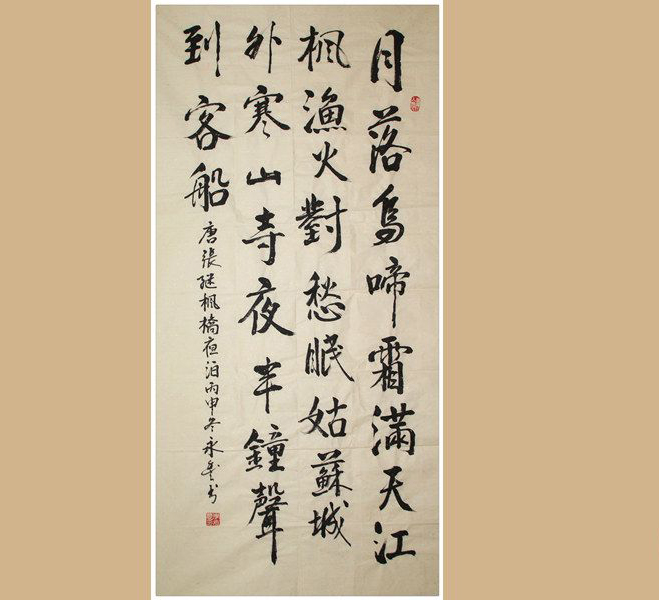 月落烏啼霜滿天江
楓漁火對愁眠姑蘇城
外寒山寺夜半鐘聲
到客船
唐張继楓橋夜泊丙申冬永书